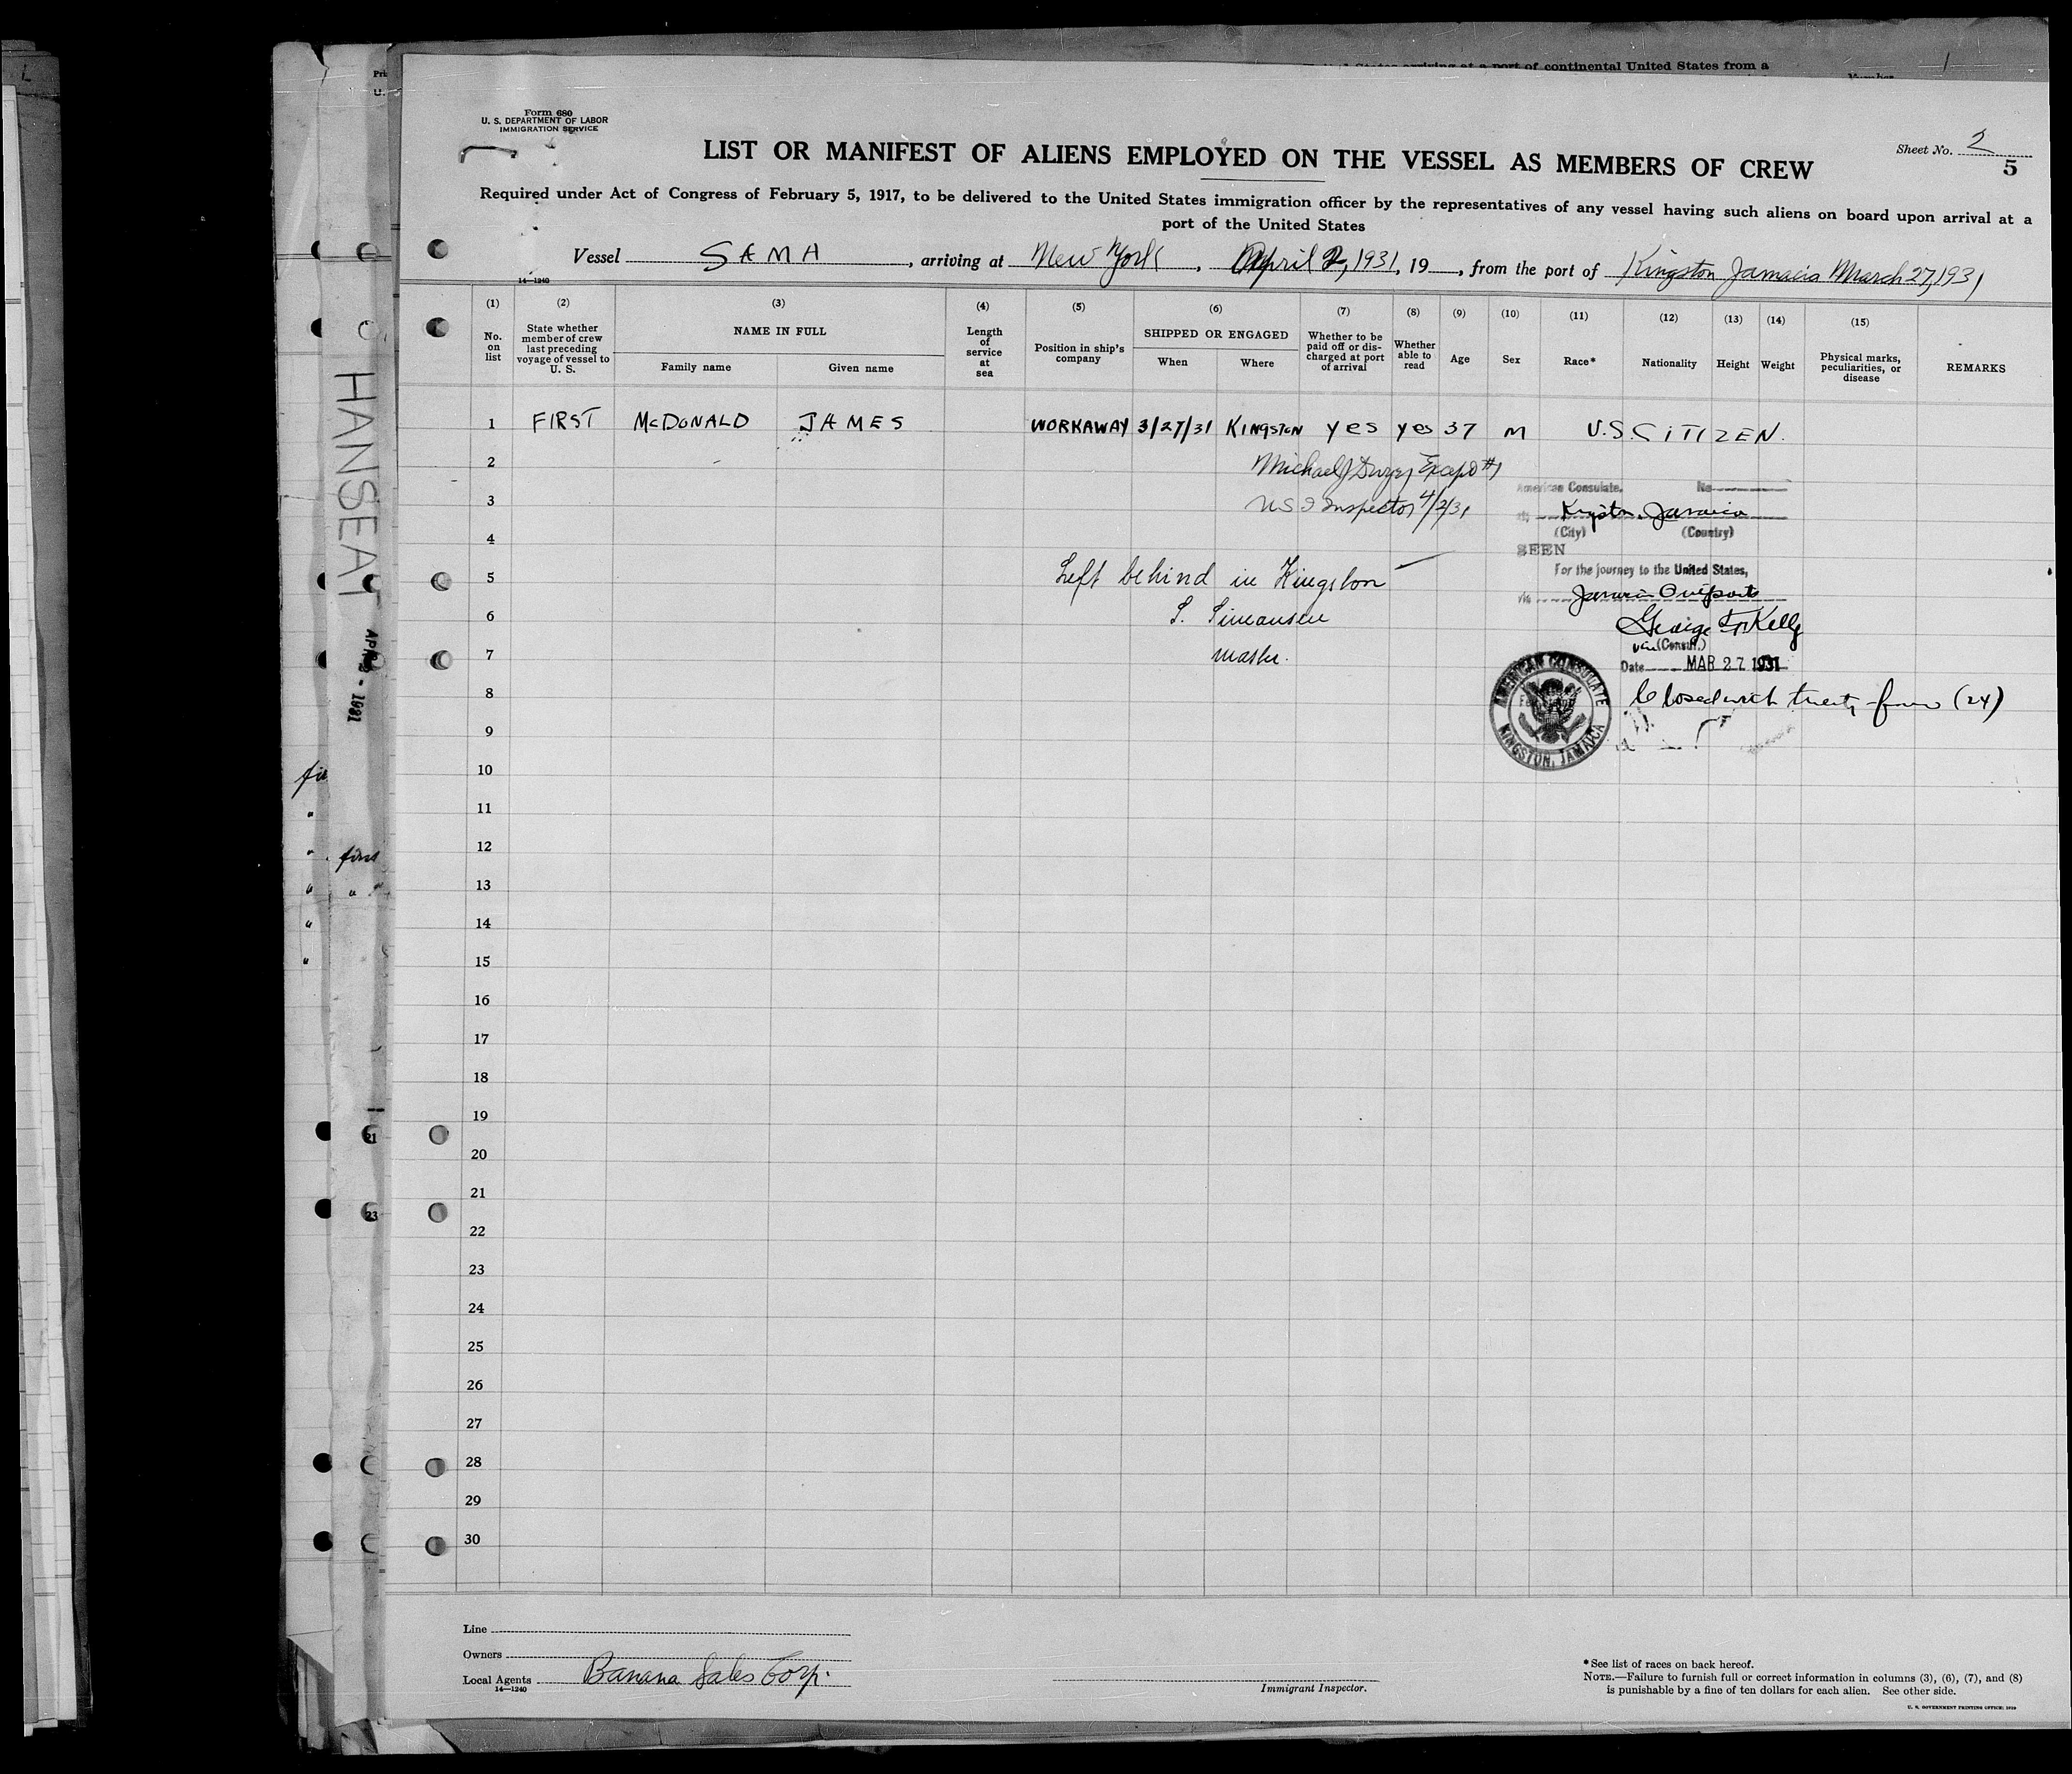 Form 680
U. S. DEPARTMENT OF LABOR
IMMIGRATION SERVICE
LIST OR MANIFEST OF ALIENS EMPLOYED ON THE VESSEL AS MEMBERS OF CREW
Sheet No. 2
5
Required under Act of Congress of February 5, 1917, to be delivered to the United States immigration officer by the representatives of any vessel having such aliens on board upon arrival at a
port of the United States
Vessel SAMA, arriving at New York, April 2, 1931, 19, from the port of Kingston Jamacia March 27, 1931
14—1240
(1) (2) (3) (4) (5) (6) (7) (8) (9) (10) (11) (12) (13) (14) (15)
No. on list
State whether member of crew last preceding voyage of vessel to U. S.
NAME IN FULL
Family name
Given name
Length of service at sea
Position in ship's company
SHIPPED OR ENGAGED
When
Where
Whether to be paid off or discharged at port of arrival
Whether able to read
Age
Sex
Race*
Nationality
Height
Weight
Physical marks, peculiarities, or disease
REMARKS
1 FIRST McDONALD JAMES WORKAWAY 3/27/31 KINGSTON yes yes 37 M U.S. CITIZEN.
2 Michael J Except #1
3 U S I Inspector 4/2/31
American Consulate. No
Kingston, Jamaica
(City) (Country)
4
SEEN
5 Left behind in Kingston
For the journey to the United States,
via Jamaica Outports
6 S. Simonsen
George F. Kelly
7 Master.
Vice (Consul.)
Date MAR 27 1931
AMERICAN CONSULATE
KINGSTON, JAMAICA
8 Closed with twenty-four (24)
9
10
11
12
13
14
15
16
17
18
19
20
21
22
23
24
25
26
27
28
29
30
Line
Owners
Local Agents Banana Sales Corp.
14—1240
Immigrant Inspector.
*See list of races on back hereof.
NOTE.—Failure to furnish full or correct information in columns (3), (6), (7), and (8)
is punishable by a fine of ten dollars for each alien. See other side.
HANSEAT
first
21
23